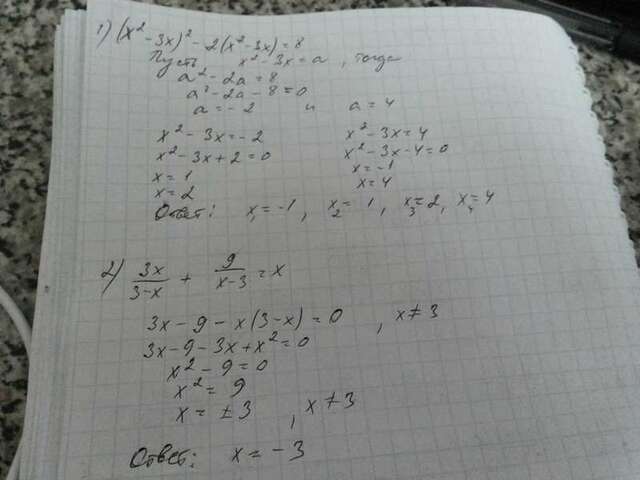 1) (x² - 3x)² - 2(x² - 3x) = 8
Пусть x² - 3x = a, тогда
a² - 2a = 8
a² - 2a - 8 = 0
a = -2 и a = 4
x² - 3x = -2 x² - 3x = 4
x² - 3x + 2 = 0 x² - 3x - 4 = 0
x = 1 x = -1
x = 2 x = 4
Ответ: x₁ = -1, x₂ = 1, x₃ = 2, x₄ = 4
2) 3x/(3-x) + 9/(x-3) = x
3x - 9 - x(3-x) = 0, x ≠ 3
3x - 9 - 3x + x² = 0
x² - 9 = 0
x² = 9
x = ±3, x ≠ 3
Ответ: x = -3